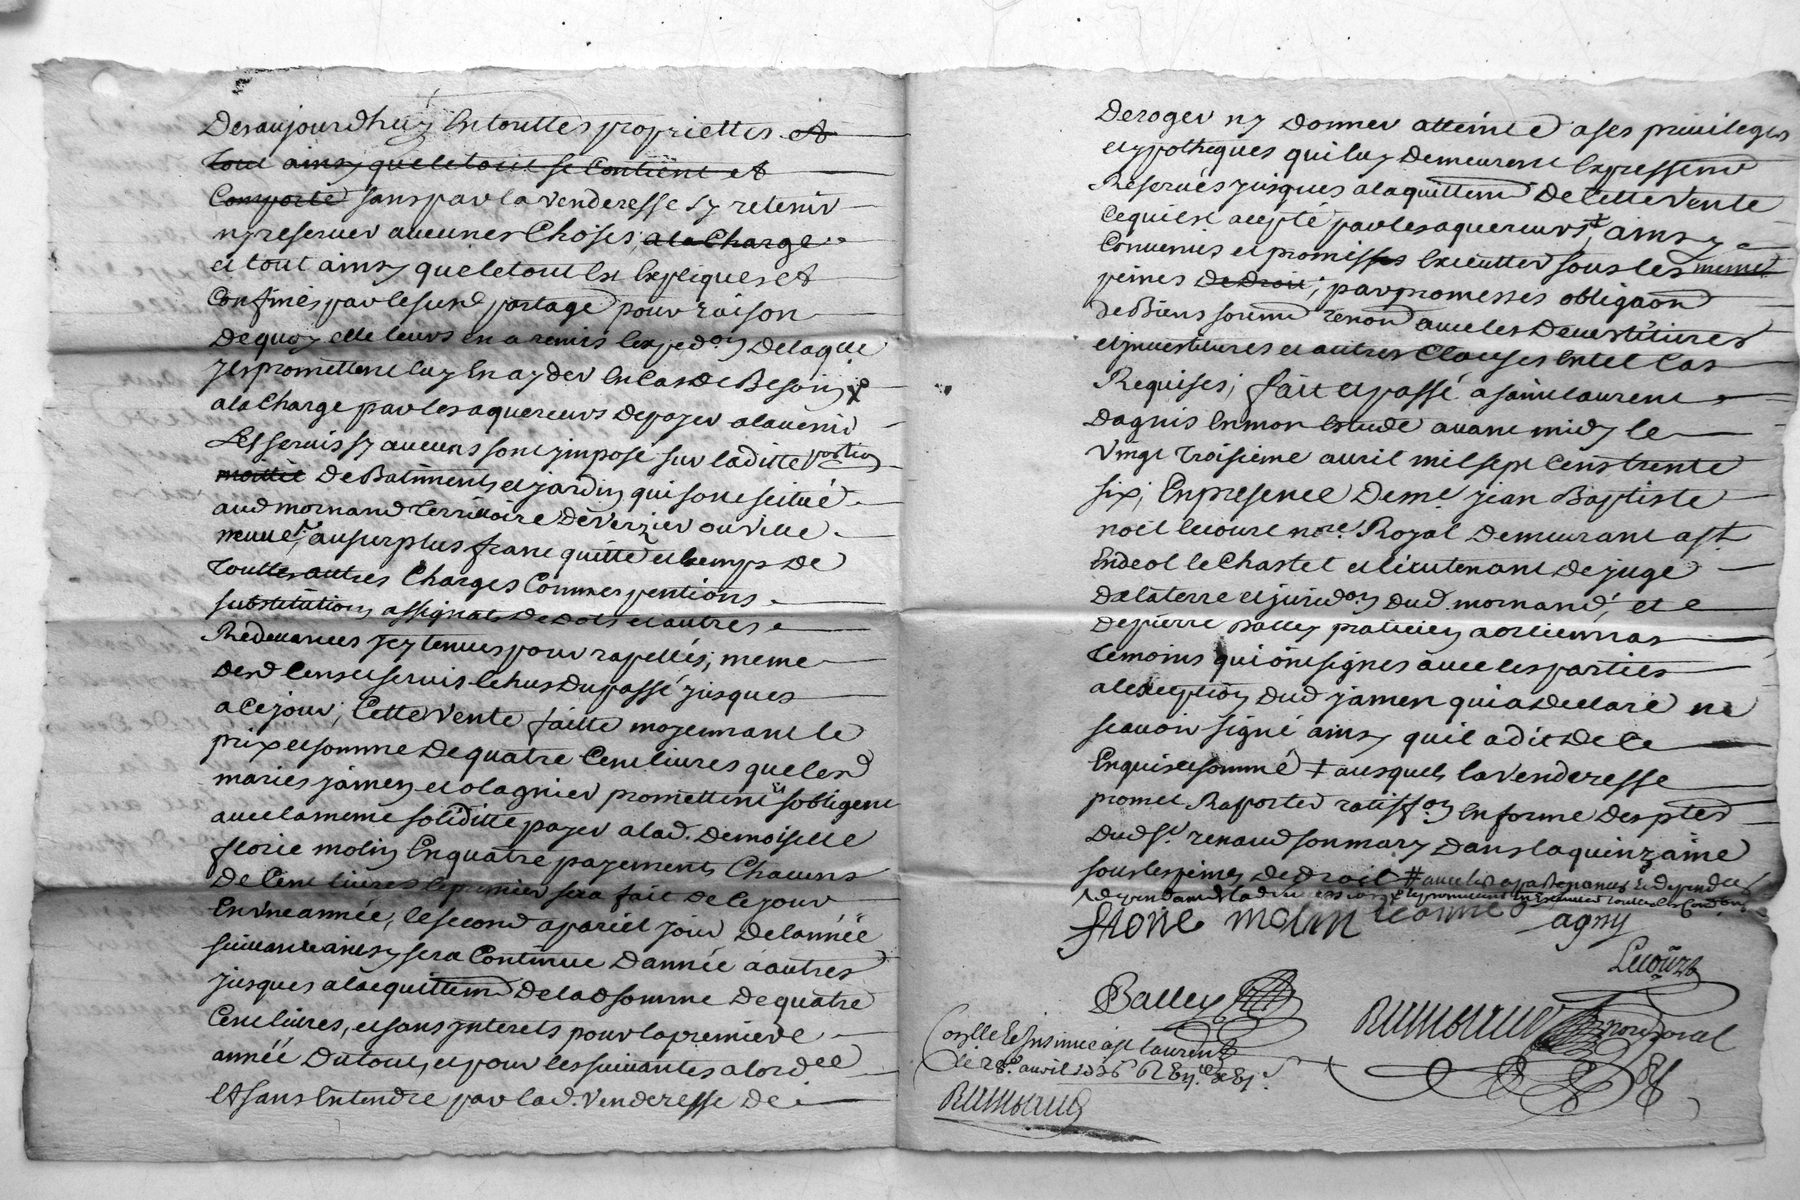 Desaujourdhuy En touttes propriettes et
tout ainsy que le tout se Contient et
Comporte sans par la venderesse sy retenir
ny reserver aucunes Choses, a la Charge
et tout ainsy que le tout Est Expliqués et
Confinés par lesusd partage pour raison
De quoy elle leurs en a remis lexpedon De laqlle
yls promettent luy En ayder En Cas de Besoin
a la Charge par les aquereurs De payer alavenir
Les servis sy aucuns sont ymposé sur laditte portion
moittié De Batiments et jardin qui sont scitué
aud mornand Territoire De verzier ou ville
neuve, au surplus franc quitte et Exemps De
Touttes autres Charges Comme pentions
substitutions assignats De Dots et autres
Redevances jcy tenues pour rapellés, meme
Desd Cens et servis Echus Du passé jusques
a Ce jour; Cette Vente faitte moyennant le
prix et somme De quatre Cent livres que lesd
maries jamen et olagnier promettent Et sobligent
avec la meme soliditté payer a lad. Demoiselle
florie molin En quatre payements Chacuns
De Cent livres le premier sera fait de Ce jour
En Une année, le second a pareil jour De lannée
suivante ainsy sera Continue Dannée a autres
jusques alaquittemt De lad somme De quatre
Cent livres, et sans ynterets pour la premiere
année Du tout, et pour les suivantes a lordce
Et sans Entendre par lad. Venderesse De
Deroger ny Donner atteinte a ses privileges
et ypotheques qui luy Demeurent Expressemt
Reservés jusques alaquittemt De Cette Vente
Ce qui Est acepté par les aquereurs, ainsy
Convenus et promisses Executter sous les memes
peines De Droit; par promesses obligaon
De Biens soumd renond avec les Devestitures
et investitures et autres Clauses En tel Cas
Requises; fait et passé a saint laurent
Dagnis En mon Etude avant midy le
Vingt Troisieme avril mil sept Cens trente
six; En presence De me jean Baptiste
noel lecourt nore. Royal Demeurant a st.
Endeol le Chastel et lieutenant De juge
De la terre et juridon Dud mornand, et
De pierre Balley praticien a orliennas
Temoins qui ont signés avec les parties
alexeption Dud jamen qui a Declaré ne
scavoir signé ainsy quil a dit De Ce
Enquis et sommé ausquels la venderesse
promet Raporter ratiffon En forme Desptes
Dud sr. renaud son mary Dans la quinzaine
sous les peines De droit # avec les apartenances Et dependces
florie molin
Lecourt
Balley
Con lle Et Insinué a st laurent
le 28e. avril 1736